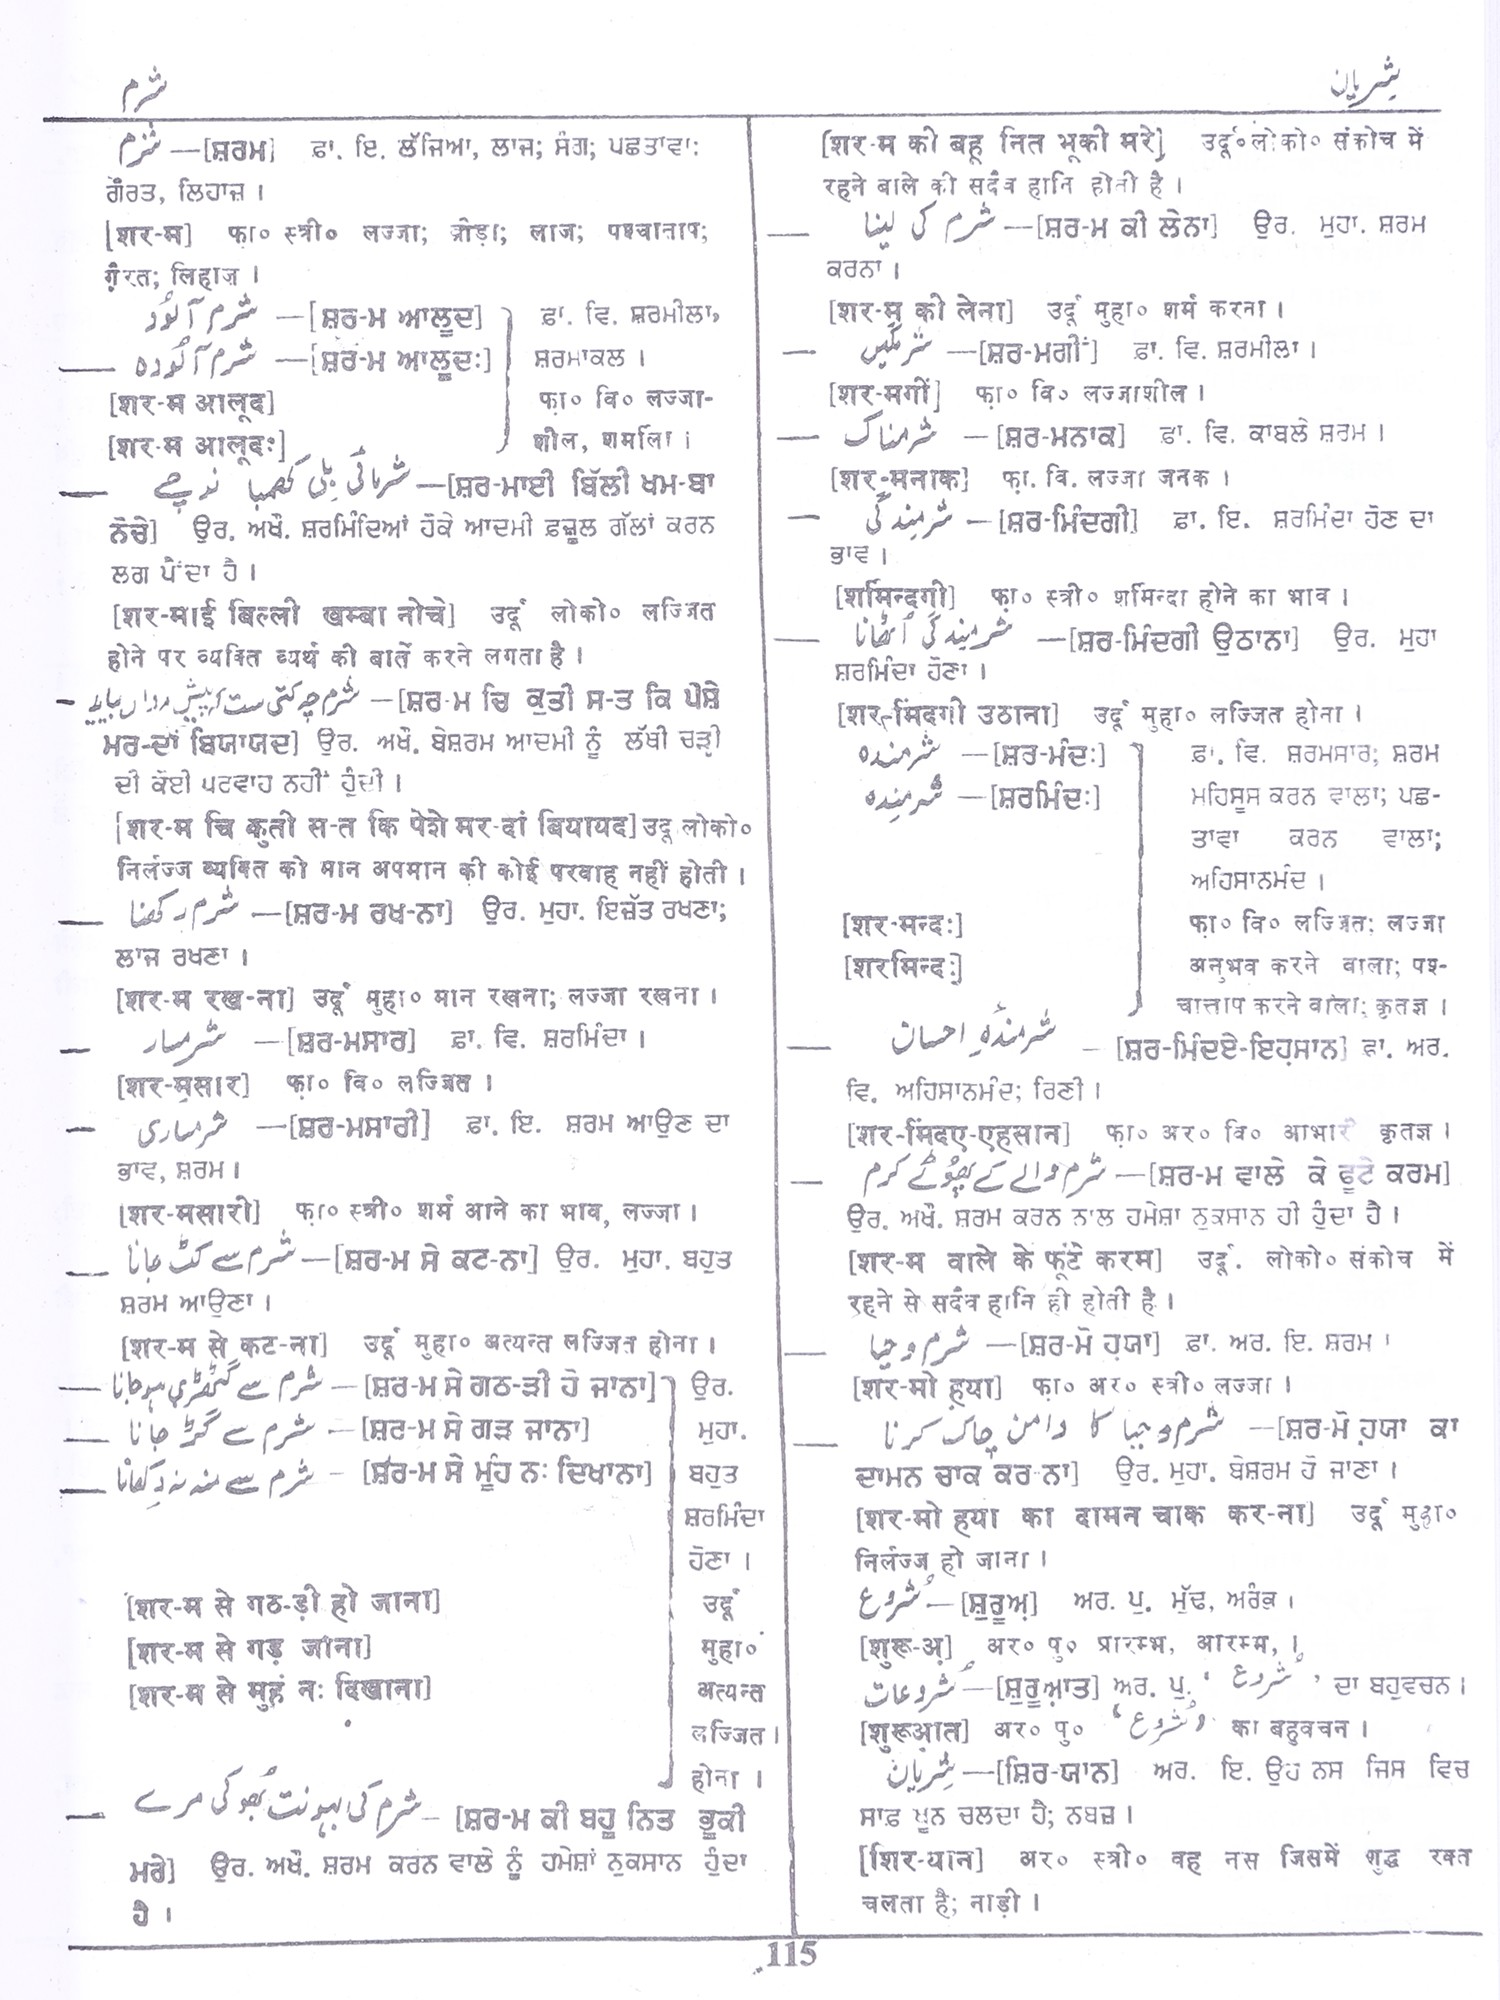 شرم
شِریان
شرم —[ਸ਼ਰਮ] ਫ਼ਾ. ਇ. ਲੱਜਿਆ, ਲਾਜ; ਸੰਗ; ਪਛਤਾਵਾ:
ਗੈਰਤ, ਲਿਹਾਜ਼ ।
[शर-म] फा० स्त्री० लज्जा; व्रीड़ा; लाज; पश्चाताप;
ग़ैरत; लिहाज़ ।
شرم آلُود —[ਸ਼ਰ-ਮ ਆਲੂਦ] ਫ਼ਾ. ਵਿ. ਸ਼ਰਮੀਲਾ,
شرم آلُودہ —[ਸ਼ਰ-ਮ ਆਲੂਦਃ] ਸ਼ਰਮਾਕਲ ।
[शर-म आलूद] फा० वि० लज्जा-
[शर-म आलूदः] शील, शर्मीला ।
شرمائی بلّی کھمبا نوچے —[ਸ਼ਰ-ਮਾਈ ਬਿੱਲੀ ਖਮ-ਬਾ
ਨੋਚੇ] ਉਰ. ਅਖੌ. ਸ਼ਰਮਿੰਦਿਆਂ ਹੋਕੇ ਆਦਮੀ ਫ਼ਜ਼ੂਲ ਗੱਲਾਂ ਕਰਨ
ਲਗ ਪੈਂਦਾ ਹੈ ।
[शर-माई बिल्ली खम्बा नोचे] उर्दू लोको० लज्जित
होने पर व्यक्ति व्यर्थ की बातें करने लगता है ।
شرم چہ کتی ست کہ پیش مرداں بیاید —[ਸ਼ਰ-ਮ ਚਿ ਕੁਤੀ ਸ-ਤ ਕਿ ਪੇਸ਼ੇ
ਮਰ-ਦਾਂ ਬਿਯਾਯਦ] ਉਰ. ਅਖੌ. ਬੇਸ਼ਰਮ ਆਦਮੀ ਨੂੰ ਲੱਥੀ ਚੜ੍ਹੀ
ਦੀ ਕੋਈ ਪਰਵਾਹ ਨਹੀਂ ਹੁੰਦੀ ।
[शर-म चि कुती स-त कि पेशे मर-दां बियायद] उर्दू लोको०
निर्लज्ज व्यक्ति को मान अपमान की कोई परवाह नहीं होती ।
شرم رکھنا —[ਸ਼ਰ-ਮ ਰਖ-ਨਾ] ਉਰ. ਮੁਹਾ. ਇਜ਼ੱਤ ਰਖਣਾ;
ਲਾਜ ਰਖਣਾ ।
[शर-म रख-ना] उर्दू मुहा० मान रखना; लज्जा रखना ।
شرمسار —[ਸ਼ਰ-ਮਸਾਰ] ਫ਼ਾ. ਵਿ. ਸ਼ਰਮਿੰਦਾ ।
[शर-मसार] फा० वि० लज्जित ।
شرمساری —[ਸ਼ਰ-ਮਸਾਰੀ] ਫ਼ਾ. ਇ. ਸ਼ਰਮ ਆਉਣ ਦਾ
ਭਾਵ, ਸ਼ਰਮ ।
[शर-मसारी] फा० स्त्री० शर्म आने का भाव, लज्जा ।
شرم سے کٹ جانا —[ਸ਼ਰ-ਮ ਸੇ ਕਟ-ਨਾ] ਉਰ. ਮੁਹਾ. ਬਹੁਤ
ਸ਼ਰਮ ਆਉਣਾ ।
[शर-म से कट-ना] उर्दू मुहा० अत्यन्त लज्जित होना ।
شرم سے گٹھڑی ہو جانا —[ਸ਼ਰ-ਮ ਸੇ ਗਠ-ੜੀ ਹੋ ਜਾਨਾ] ਉਰ.
شرم سے گڑ جانا —[ਸ਼ਰ-ਮ ਸੇ ਗੜ ਜਾਨਾ] ਮੁਹਾ.
شرم سے منہ نہ دکھانا —[ਸ਼ਰ-ਮ ਸੇ ਮੂੰਹ ਨਃ ਦਿਖਾਨਾ] ਬਹੁਤ
ਸ਼ਰਮਿੰਦਾ
ਹੋਣਾ ।
[शर-म से गठ-ड़ी हो जाना] उर्दू
[शर-म से गड़ जाना] मुहा०
[शर-म से मुहं नः दिखाना] अत्यन्त
लज्जित ।
होना ।
شرم کی بہو نت بھوکی مرے —[ਸ਼ਰ-ਮ ਕੀ ਬਹੂ ਨਿਤ ਭੂਕੀ
ਮਰੇ] ਉਰ. ਅਖੌ. ਸ਼ਰਮ ਕਰਨ ਵਾਲੇ ਨੂੰ ਹਮੇਸ਼ਾਂ ਨੁਕਸਾਨ ਹੁੰਦਾ
ਹੈ ।
[शर-म की बहू नित भूकी मरे] उर्दू०लोको० संकोच में
रहने बाले की सदैव हानि होती है ।
شرم کی لینا —[ਸ਼ਰ-ਮ ਕੀ ਲੇਨਾ] ਉਰ. ਮੁਹਾ. ਸ਼ਰਮ
ਕਰਨਾ ।
[शर-म की लेना] उर्दू मुहा० शर्म करना ।
شرمگیں —[ਸ਼ਰ-ਮਗੀਂ] ਫ਼ਾ. ਵਿ. ਸ਼ਰਮੀਲਾ ।
[शर-मगीं] फा० वि० लज्जाशील ।
شرمناک —[ਸ਼ਰ-ਮਨਾਕ] ਫ਼ਾ. ਵਿ. ਕਾਬਲੇ ਸ਼ਰਮ ।
[शर-मनाक] फा. वि. लज्जा जनक ।
شرمِندگی —[ਸ਼ਰ-ਮਿੰਦਗੀ] ਫ਼ਾ. ਇ. ਸ਼ਰਮਿੰਦਾ ਹੋਣ ਦਾ
ਭਾਵ ।
[शर्मिन्दगी] फा० स्त्री० शर्मिन्दा होने का भाव ।
شرمِندگی اُٹھانا —[ਸ਼ਰ-ਮਿੰਦਗੀ ਉਠਾਨਾ] ਉਰ. ਮੁਹਾ
ਸ਼ਰਮਿੰਦਾ ਹੋਣਾ ।
[शर-मिंदगी उठाना] उर्दू मुहा० लज्जित होना ।
شرمندہ —[ਸ਼ਰ-ਮੰਦਃ] ਫ਼ਾ. ਵਿ. ਸ਼ਰਮਸਾਰ; ਸ਼ਰਮ
شرمِندہ —[ਸ਼ਰਮਿੰਦਃ] ਮਹਿਸੂਸ ਕਰਨ ਵਾਲਾ; ਪਛ-
ਤਾਵਾ ਕਰਨ ਵਾਲਾ;
ਅਹਿਸਾਨਮੰਦ ।
[शर-मन्दः] फा० वि० लज्जित; लज्जा
[शरमिन्दः] अनुभव करने वाला; पश-
चात्ताप करने वाला; कृतज्ञ ।
شرمندۂِ احسان —[ਸ਼ਰ-ਮਿੰਦਏ-ਇਹਸਾਨ] ਫ਼ਾ. ਅਰ.
ਵਿ. ਅਹਿਸਾਨਮੰਦ; ਰਿਣੀ ।
[शर-मिंदए-एहसान] फा० अर० वि० आभारी कृतज्ञ ।
شرم والے کے پھوٹے کرم —[ਸ਼ਰ-ਮ ਵਾਲੇ ਕੇ ਫੂਟੇ ਕਰਮ]
ਉਰ. ਅਖੌ. ਸ਼ਰਮ ਕਰਨ ਨਾਲ ਹਮੇਸ਼ਾ ਨੁਕਸਾਨ ਹੀ ਹੁੰਦਾ ਹੈ ।
[शर-म वाले के फूटे करम] उर्दू. लोको० संकोच में
रहने से सदैव हानि ही होती है ।
شرم و حیا —[ਸ਼ਰ-ਮੋ ਹਯਾ] ਫ਼ਾ. ਅਰ. ਇ. ਸ਼ਰਮ ।
[शर-मो हया] फा० अर० स्त्री० लज्जा ।
شرم و حیا کا دامن چاک کرنا —[ਸ਼ਰ-ਮੋ ਹਯਾ ਕਾ
ਦਾਮਨ ਚਾਕ ਕਰ-ਨਾ] ਉਰ. ਮੁਹਾ. ਬੇਸ਼ਰਮ ਹੋ ਜਾਣਾ ।
[शर-मो हया का दामन चाक कर-ना] उर्दू मुहा०
निर्लज्ज हो जाना ।
شُروع —[ਸ਼ੁਰੂਅ] ਅਰ. ਪੁ. ਮੁੱਢ, ਅਰੰਭ ।
[शुरू-अ] अर० पु० प्रारम्भ, आरम्भ, ।
شُروعات —[ਸ਼ੁਰੂਆਤ] ਅਰ. ਪੁ. ‘شُروع’ ਦਾ ਬਹੁਵਚਨ ।
[शुरूआत] अर० पु० ‘شُروع’ का बहुवचन ।
شِریان —[ਸ਼ਿਰ-ਯਾਨ] ਅਰ. ਇ. ਉਹ ਨਸ ਜਿਸ ਵਿਚ
ਸਾਫ਼ ਖੂਨ ਚਲਦਾ ਹੈ; ਨਬਜ਼ ।
[शिर-यान] अर० स्त्री० वह नस जिसमें शुद्ध रक्त
चलता है; नाड़ी ।
115